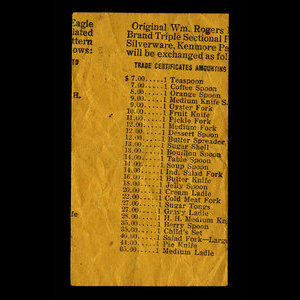 Eagle
lated
ttern
ows:
TO
H.
fe
Original Wm. Rogers
Brand Triple Sectional P
Silverware, Kenmore Pa
will be exchanged as fol
TRADE CERTIFICATES AMOUNTING
$ 7.00.....1 Teaspoon
7.00.....1 Coffee Spoon
8.00.....1 Orange Spoon
9.00.....1 Medium Knife S
9.00.....1 Oyster Fork
10.00.....1 Fruit Knife
11.00.....1 Pickle Fork
12.00.....1 Medium Fork
12.00.....1 Dessert Spoon
12.00.....1 Butter Spreader
13.00.....1 Sugar Shell
13.00.....1 Bouillon Spoon
14.00.....1 Table Spoon
14.00.....1 Soup Spoon
14.00.....1 Ind. Salad Fork
16.00.....1 Butter Knife
18.00.....1 Jelly Spoon
20.00.....1 Cream Ladle
22.00.....1 Cold Meat Fork
27.00.....1 Sugar Tongs
27.00.....1 Gravy Ladle
28.00.....1 H. H. Medium Kni
35.00.....1 Berry Spoon
35.00.....1 Child's Set
40.00.....1 Salad Fork—Larg
44.00.....1 Pie Knife
65.00.....1 Medium Ladle